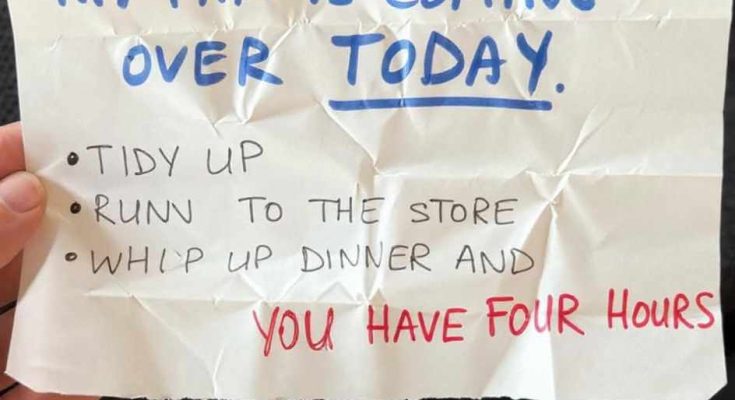 IS COMING
OVER TODAY.
• TIDY UP
• RUNN TO THE STORE
• WHIP UP DINNER AND
YOU HAVE FOUR HOURS